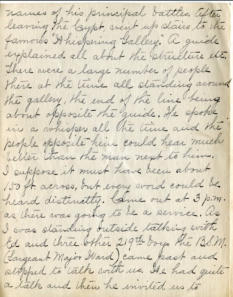 names of his principal battles. After
leaving the Crypt, went up stairs to the
famous "Whispering Gallery." A guide
explained all about the structure etc.
There were a large number of people
there at the time all standing around
the gallery, the end of the line being
about opposite the guide. He spoke
in a whisper all the time and the
people opposite him could hear much
better than the man next to him.
I suppose it must have been about
150 ft. across, but every word could be
heard distinctly. Came out at 3 p.m.
as there was going to be a service. As
I was standing outside talking with
Ed and three other 219th boys the
Sargeant Major Ward) came past and
stopped to talk with us. He had quite
a talk and then he invited us to